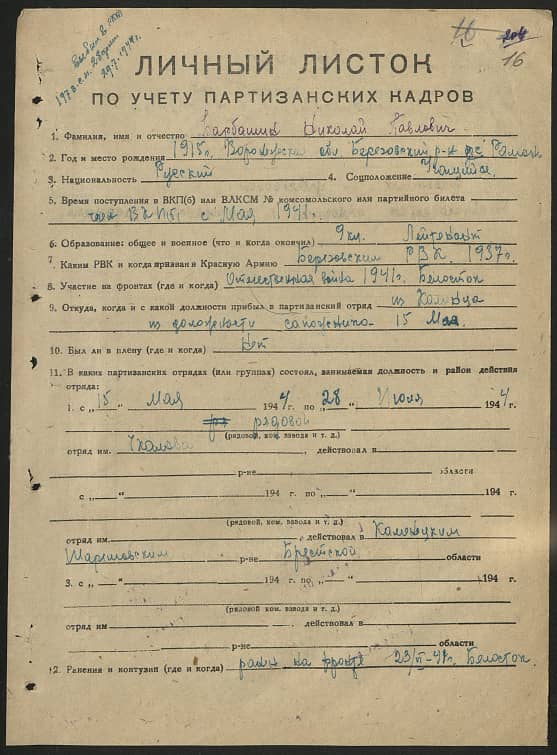 16
Выбыл в РККА
29.7-1944г.
16
ЛИЧНЫЙ ЛИСТОК
ПО УЧЕТУ ПАРТИЗАНСКИХ КАДРОВ
1. Фамилия, имя и отчество Барбашин Николай Павлович
2. Год и место рождения 1915г. Воронежская обл. Березовский р-н Рамонь
3. Национальность Русский 4. Соцположение Учащийся
5. Время поступления в ВКП(б) или ВЛКСМ № комсомольского или партийного билета
член ВКП(б) с Мая 1941г.
6. Образование: общее и военное (что и когда окончил) 9 кл. Лейтенант
7. Каким РВК и когда призван в Красную Армию Березовским РВК 1937г.
8. Участие на фронтах (где и когда) Отечественная война 1941г. Белосток
9. Откуда, когда и с какой должности прибыл в партизанский отряд из Каменца
из должности сапожника 15 Мая
10. Был ли в плену (где и когда) Нет
11. В каких партизанских отрядах (или группах) состоял, занимаемая должность и район действия
отряда:
1. с „15“ Мая 1944 г. по „28“ Июля 1944 г.
рядовой
(рядовой, ком. взвода и т. д.)
отряд им. Чкалова, действовал в
р-не области
с „ “ 194 г. по „ “ 194 г.
(рядовой, ком. взвода и т. д.)
отряд им. действовал в Каменецким
р-не Брестской области
3. с „ “ 194 г. по „ “ 194 г.
(рядовой, ком. взвода и т. д.)
отряд им. действовал в
р-не области
12. Ранения и контузии (где и когда) ранен на фронте 23/VI-41г. Белосток